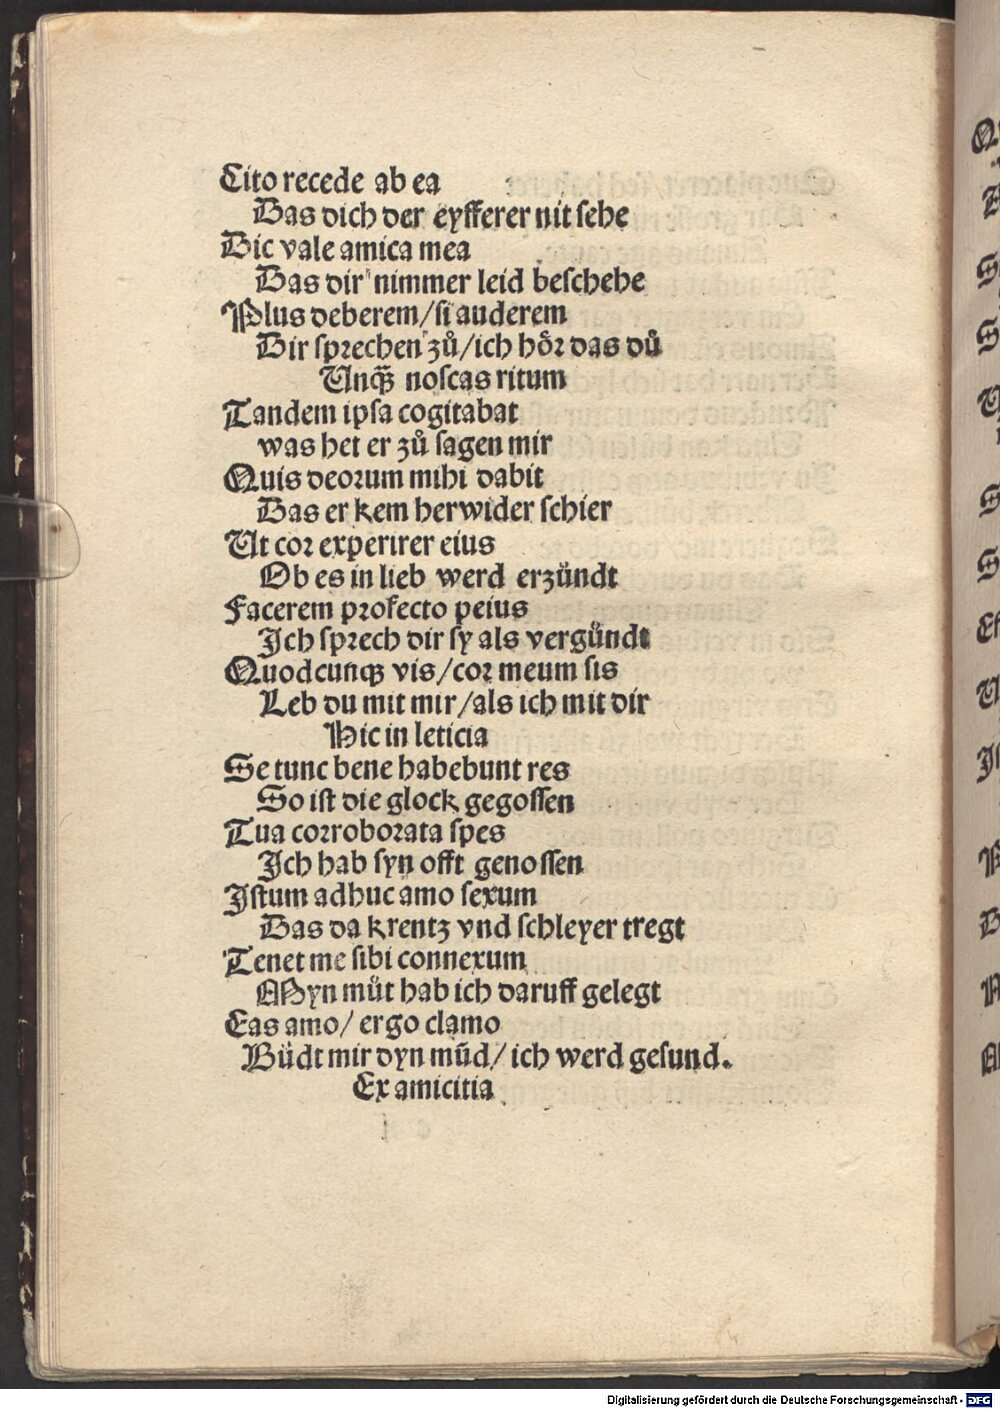 Cito recede ab ea
Das dich der eyfferer nit sehe
Dic vale amica mea
Das dir nimmer leid beschehe
Plus deberem/si auderem
Dir sprechen zů/ich hör das dů
Unqȝ̃ noscas ritum
Tandem ipsa cogitabat
was het er zů sagen mir
Quis deorum mihi dabit
Das er kem herwider schier
Ut cor experirer eius
Ob es in lieb werd erzündt
Facerem profecto peius
Ich sprech dir sy als vergündt
Quodcunqȝ vis/cor meum sis
Leb du mit mir/als ich mit dir
Hic in leticia
Se tunc bene habebunt res
So ist die glock gegossen
Tua corroborata spes
Ich hab syn offt genossen
Istum adhuc amo sexum
Das da krentz vnd schleyer tregt
Tenet me sibi connexum
Myn můt hab ich daruff gelegt
Eas amo/ ergo clamo
Büdt mir dyn mũd/ ich werd gesund.
Ex amicitia
Digitalisierung gefördert durch die Deutsche Forschungsgemeinschaft - DFG